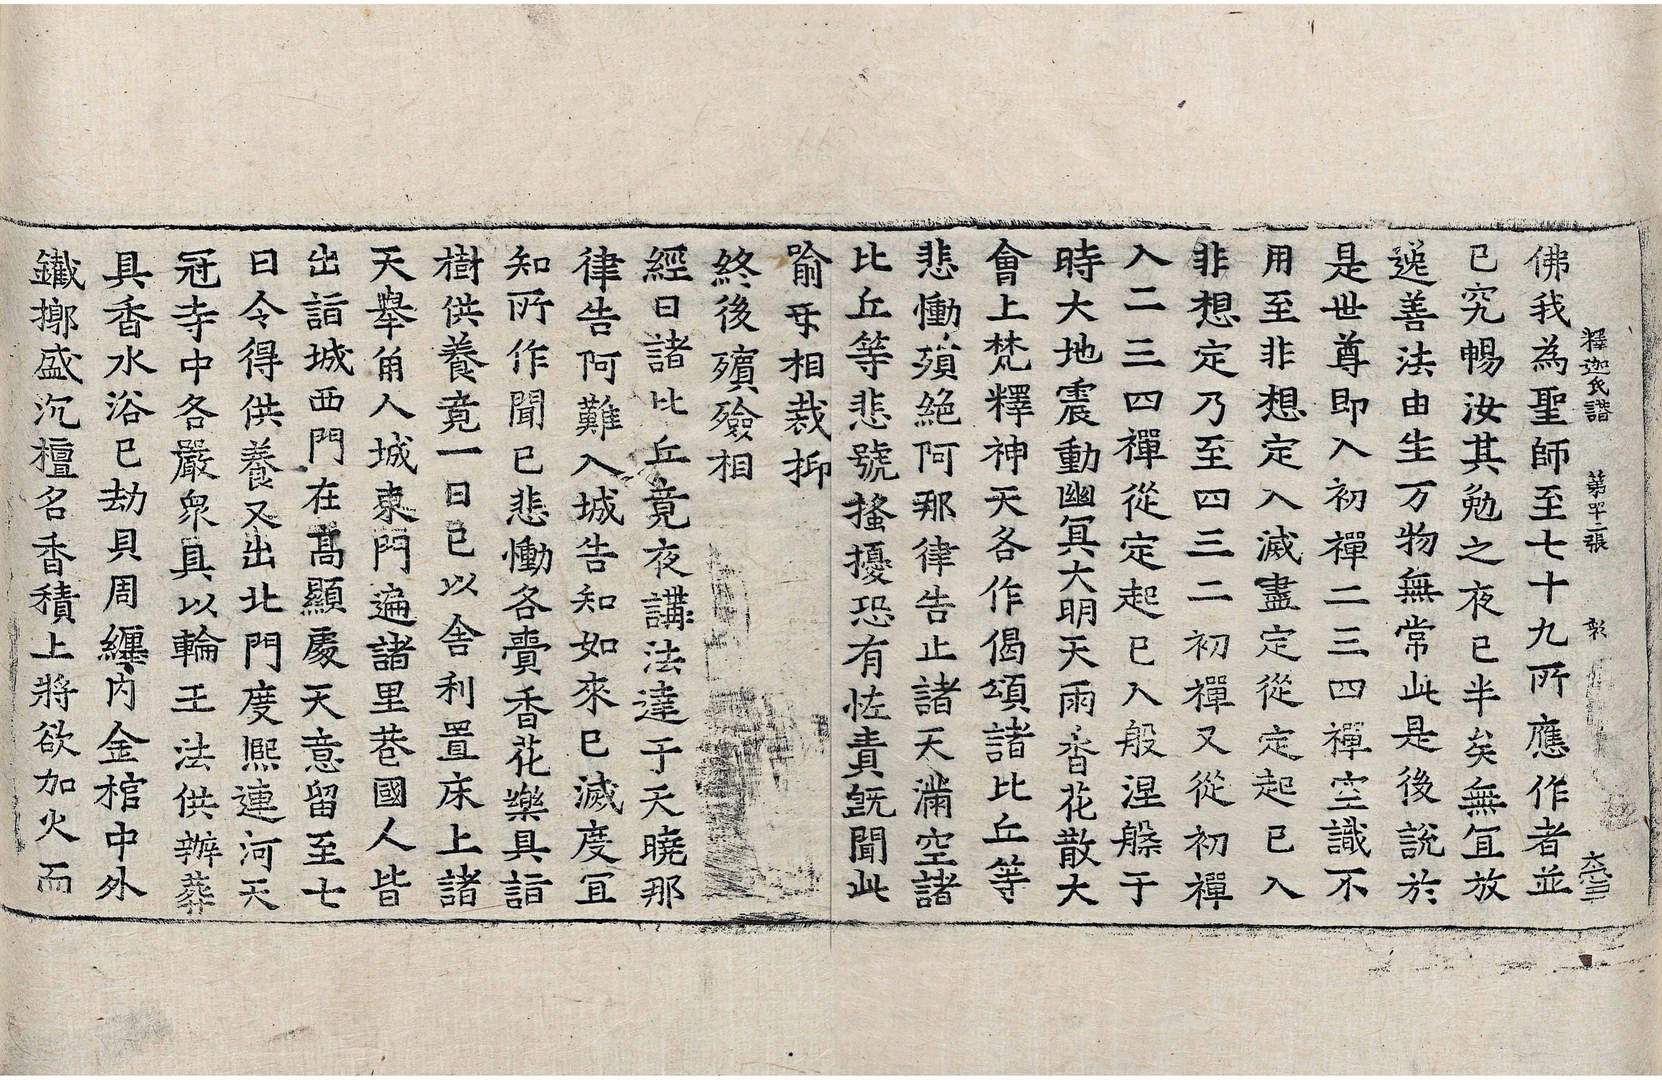 釋迦氏譜 第 張 彰
佛我為聖師至七十九所應作者並
已究暢汝其勉之夜已半矣無冝放
逸善法由生万物無常此是後說於
是世尊即入初禪二三四禪空識不
用至非想定入滅盡定從定起已入
非想定乃至四三二初禪又從初禪
入二三四禪從定起已入般涅槃于
時大地震動幽冥大明天雨香花散大
會上梵釋神天各作偈頌諸比丘等
悲慟殞絕阿那律告止諸天滿空諸
比丘等悲號搔擾恐有怪責旣聞此
喻互相裁抑
終後殯殮相
經曰諸比丘竟夜講法達于天曉那
律告阿難入城告知如來已滅度冝
知所作聞已悲慟各賷香花樂具詣
樹供養竟一日已以舍利置床上諸
天舉角人城東門遍諸里巷國人皆
出詣城西門在高顯處天意留至七
日令得供養又出北門度熙連河天
冠寺中各嚴眾具以輪王法供辦葬
具香水浴已劫貝周纏內金棺中外
鐵槨盛沉檀名香積上將欲加火而